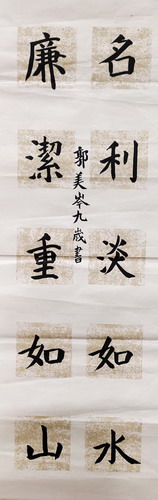 名利淡如水
廉潔重如山
郭美岑九歲書